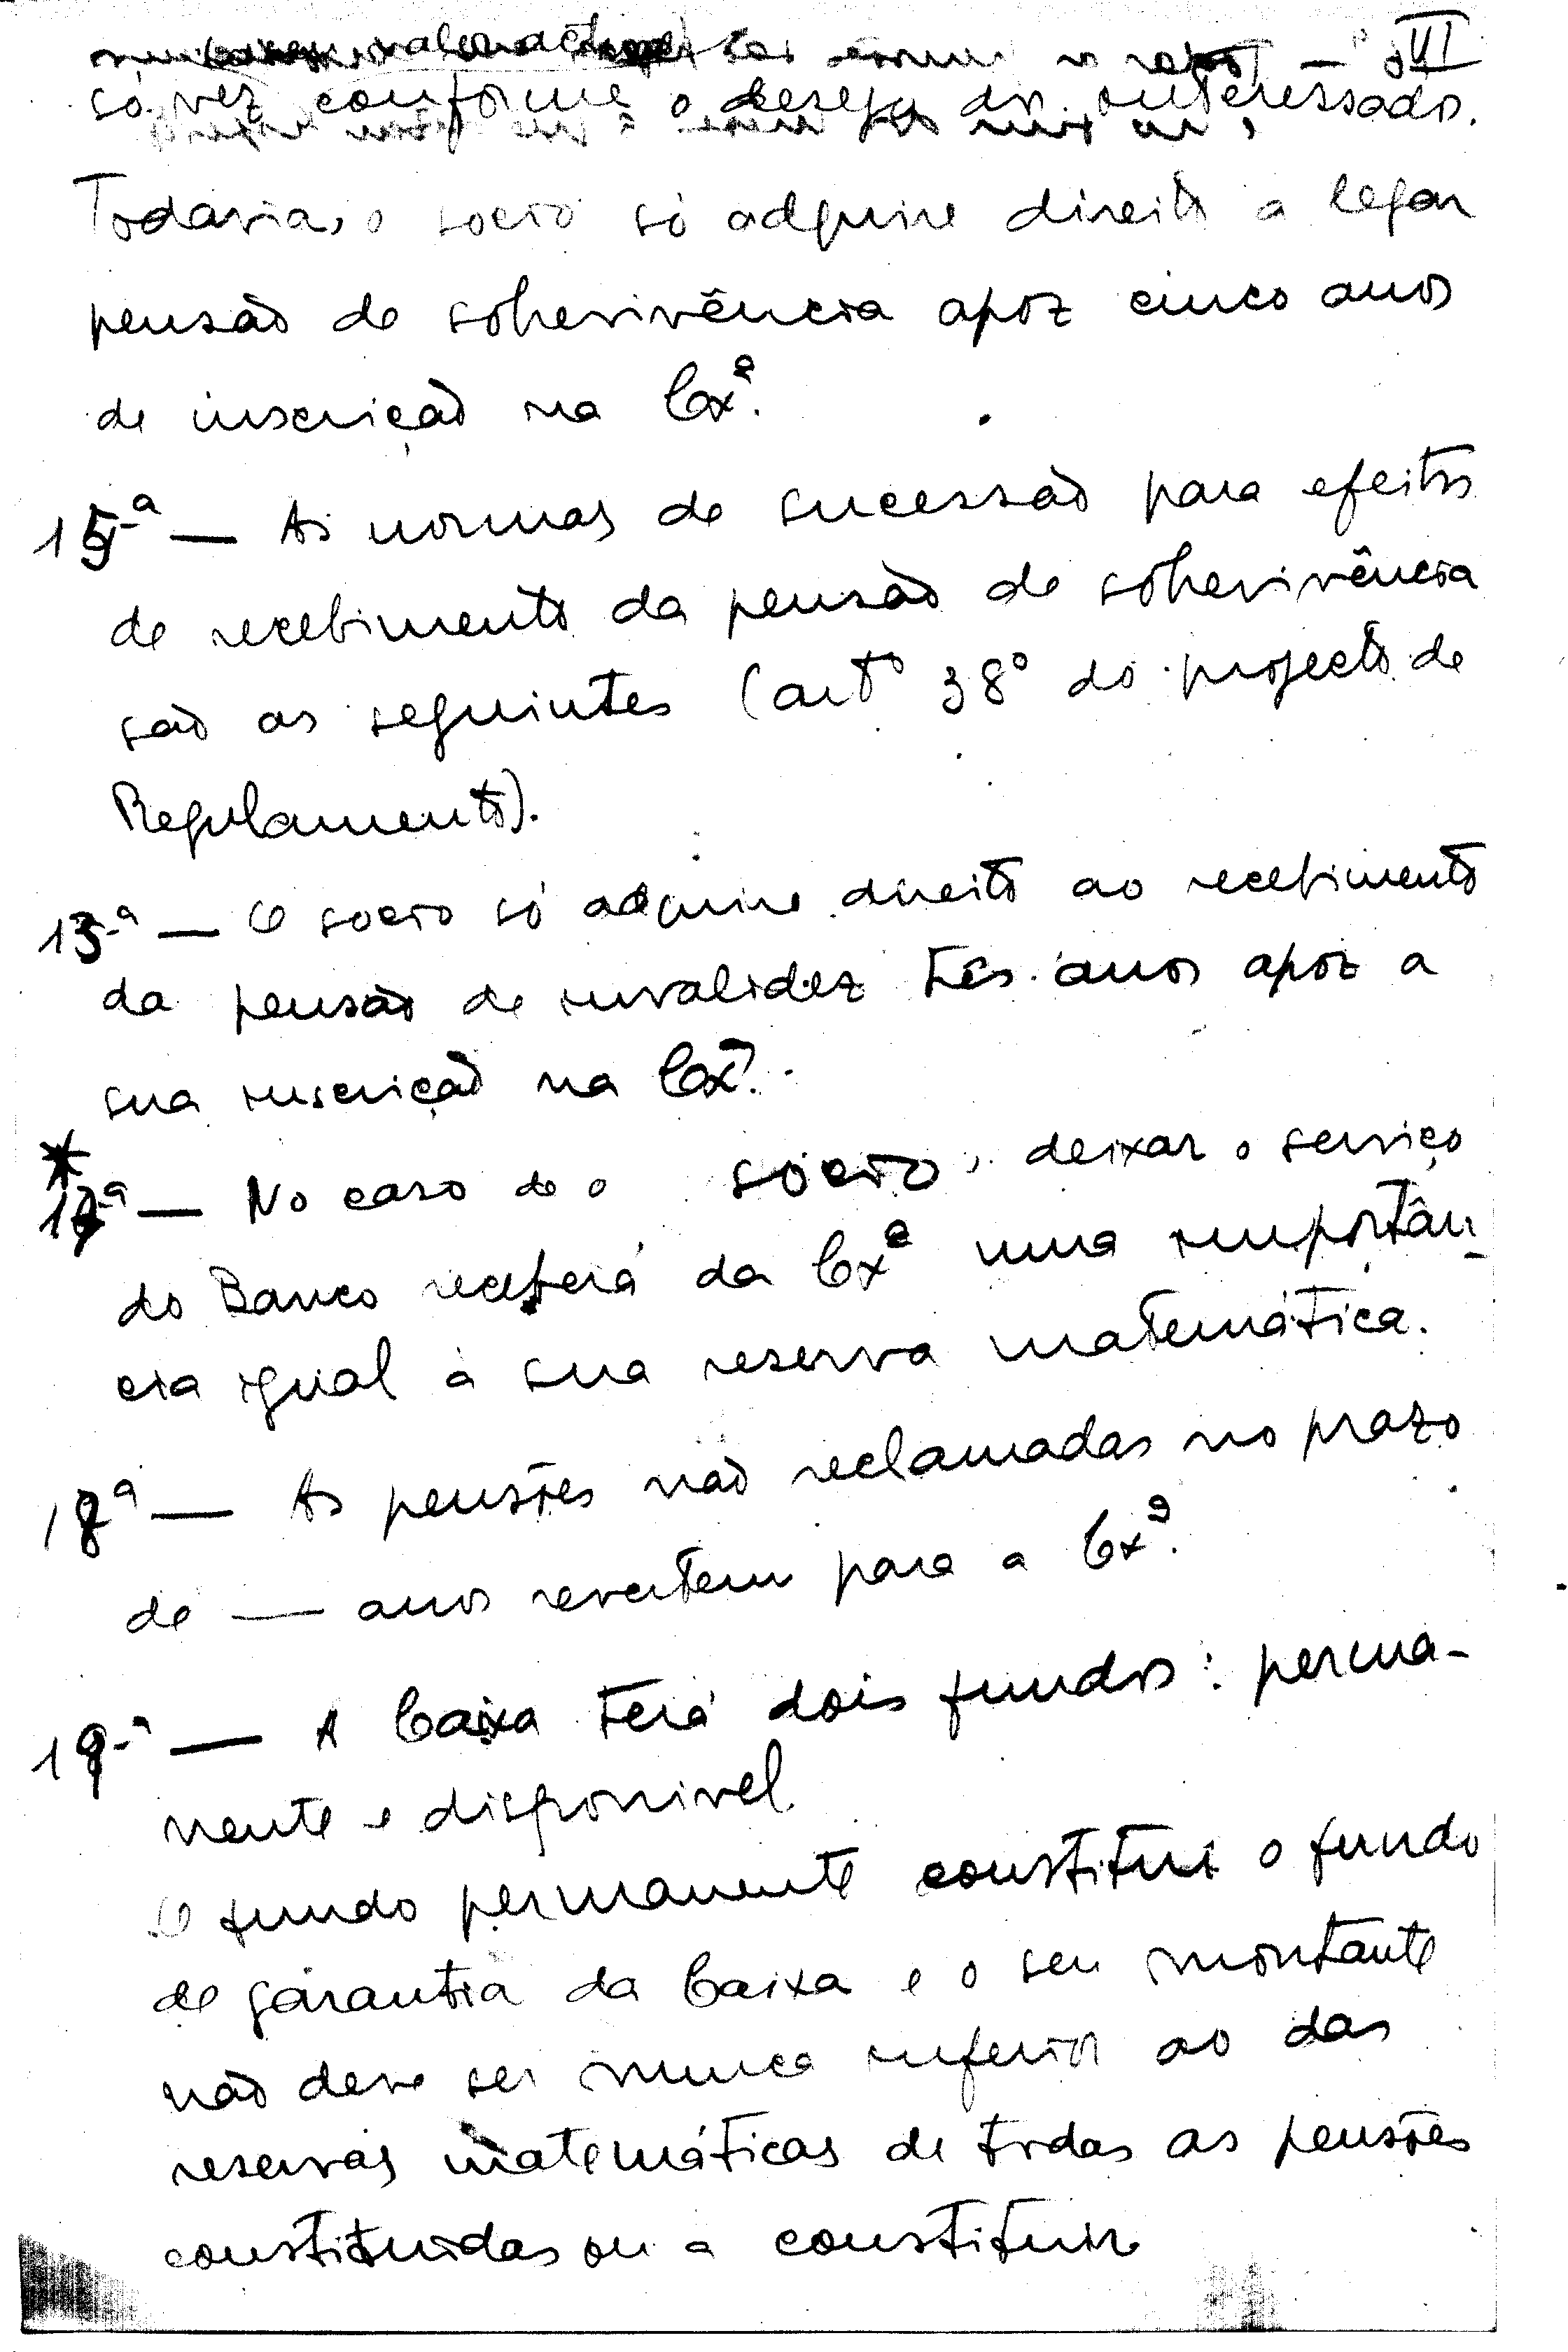 VI
só vez conforme o desejo do interessado.
Todavia, o socio só adquire direito a legar
pensão de sobrevivência apoz cinco anos
de inscrição na Cxª.
15ª — As normas de sucessão para efeitos
de recebimento da pensão de sobrevivência
são as seguintes (artº 38º do projecto de
Regulamento).
13ª — O socio só adquire direito ao recebimento
da pensão de invalidez três anos apoz a
sua inscrição na Cxª.
*
17ª — No caso de o sócio, deixar o serviço
do Banco receberá da Cxª uma importân-
cia igual à sua reserva matemática.
18ª — As pensões não reclamadas no prazo
de — anos revertem para a Cxª.
19ª — A Caixa terá dois fundos: perma-
nente e disponivel
O fundo permanente constitui o fundo
de garantia da Caixa e o seu montante
não deve ser nunca inferior ao das
reservas matemáticas de todas as pensões
constituidas ou a constituir